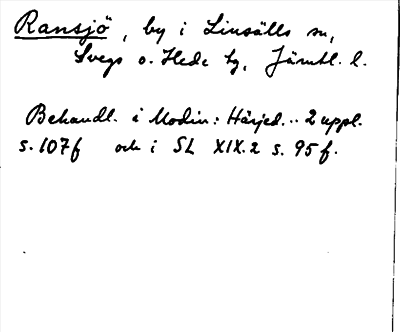 Ransjö, by i Linsälls sn,
Svegs o. Hede tg, Jämtl. l.
Behandl. i Modin: Härjed... 2 uppl.
s. 107f och i SL XIX.2 s. 95f.